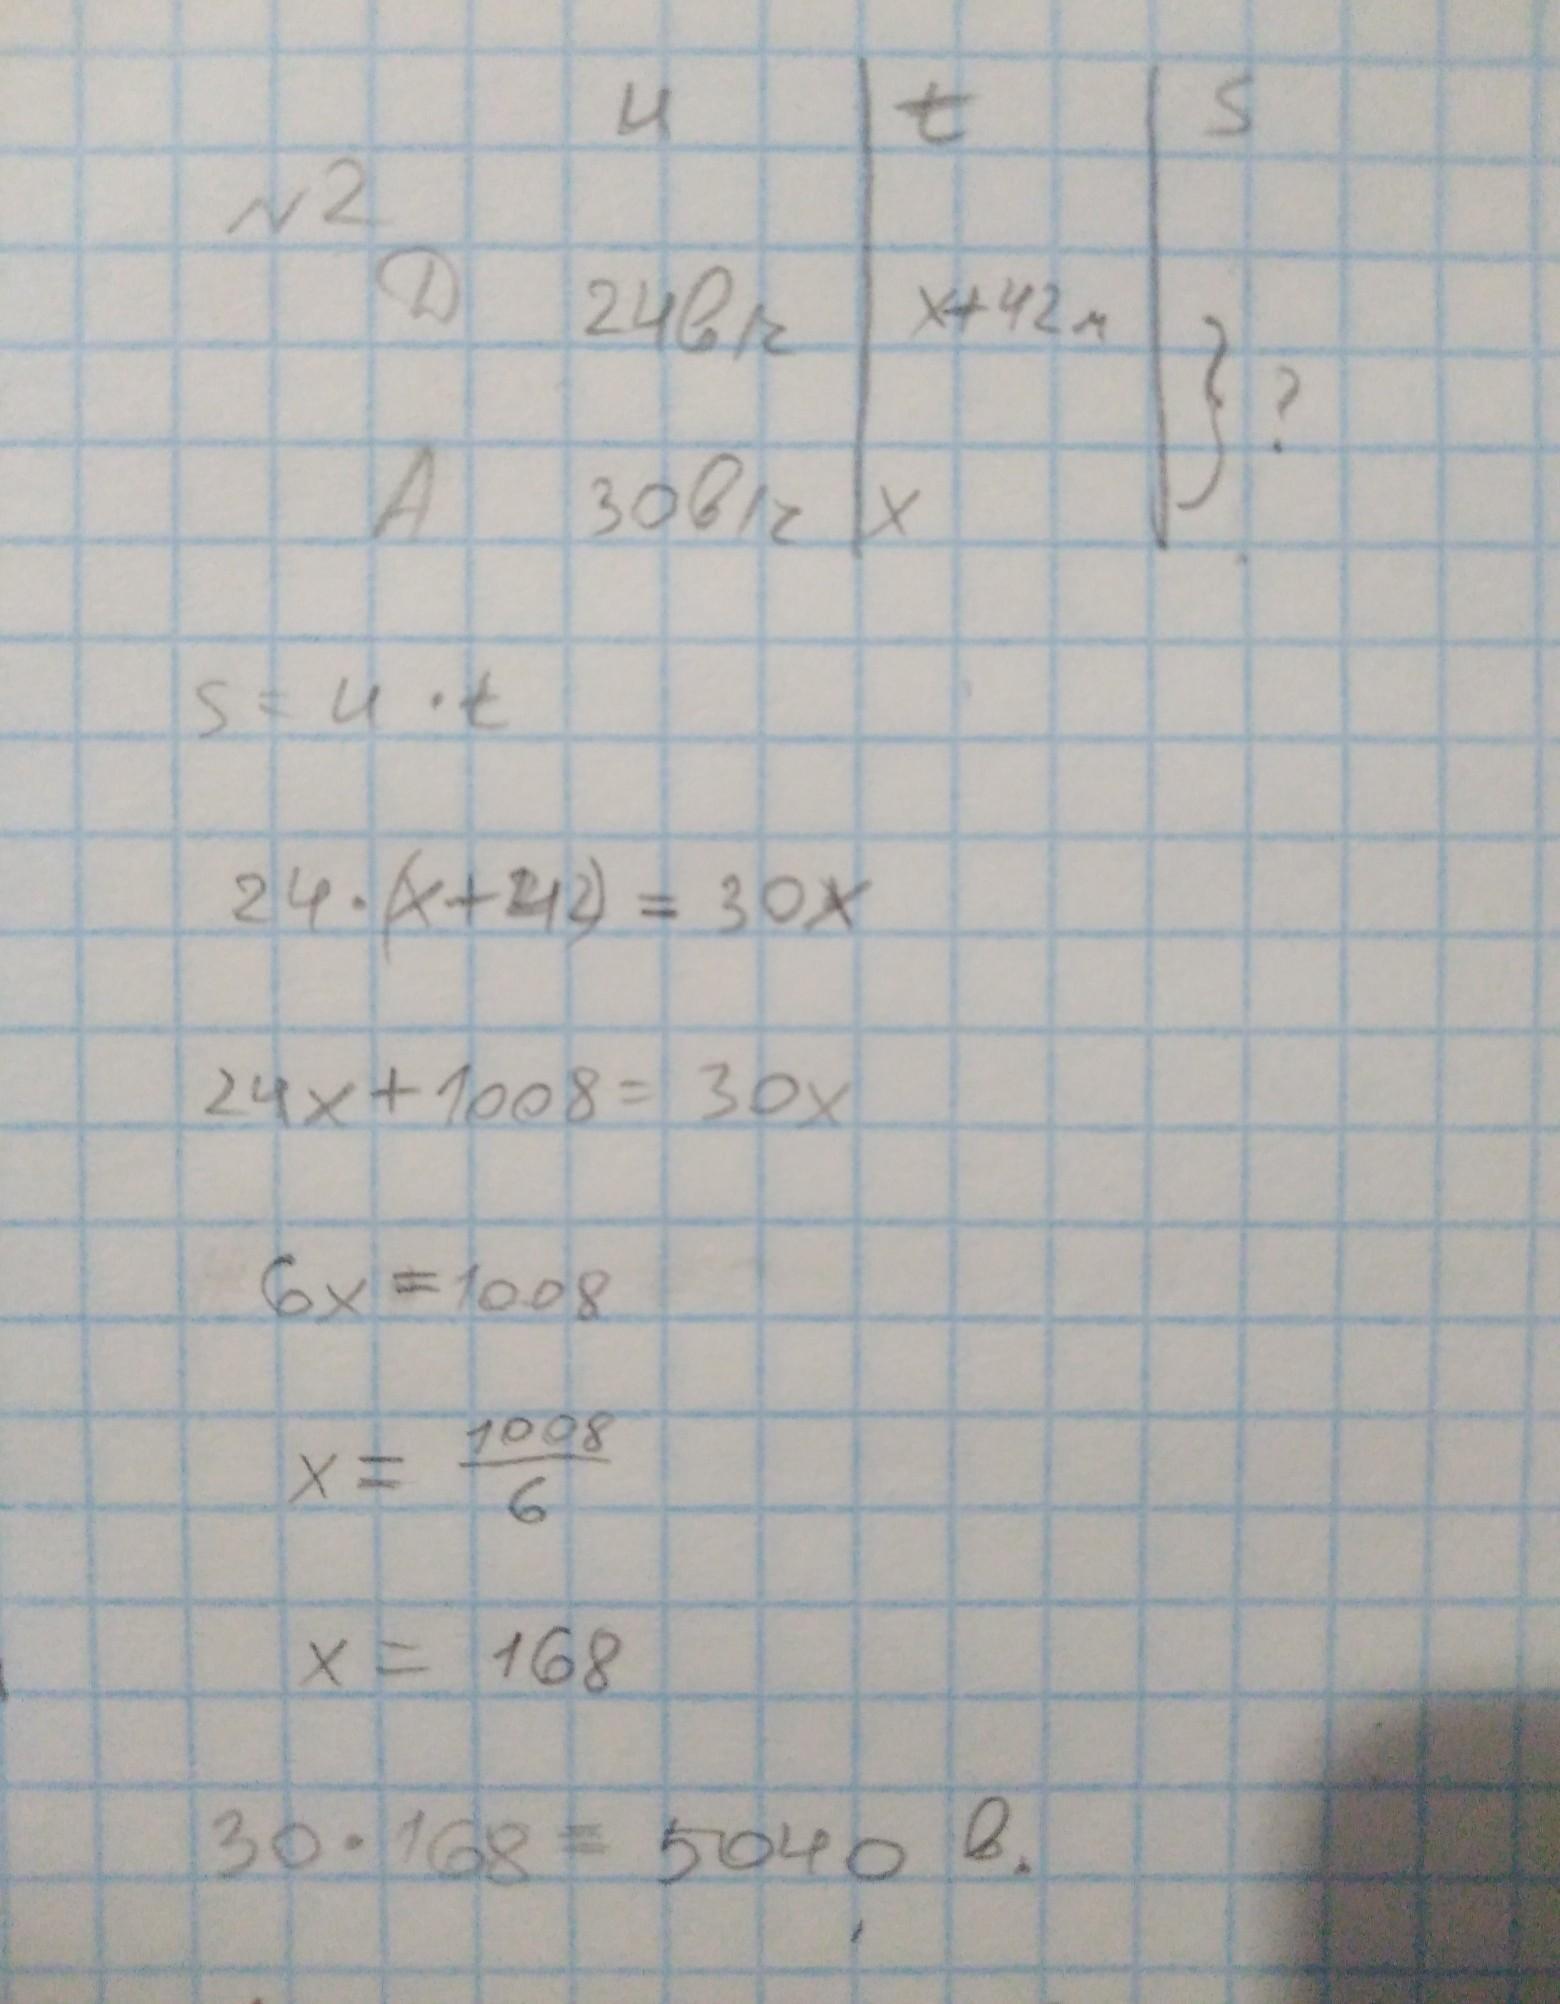 и t s
№2
D 24в/ч x+42м
} ?
А 30в/ч x
s = и · t
24 · (x+42) = 30x
24x + 1008 = 30x
6x = 1008
x = 1008/6
x = 168
30 · 168 = 5040 в.